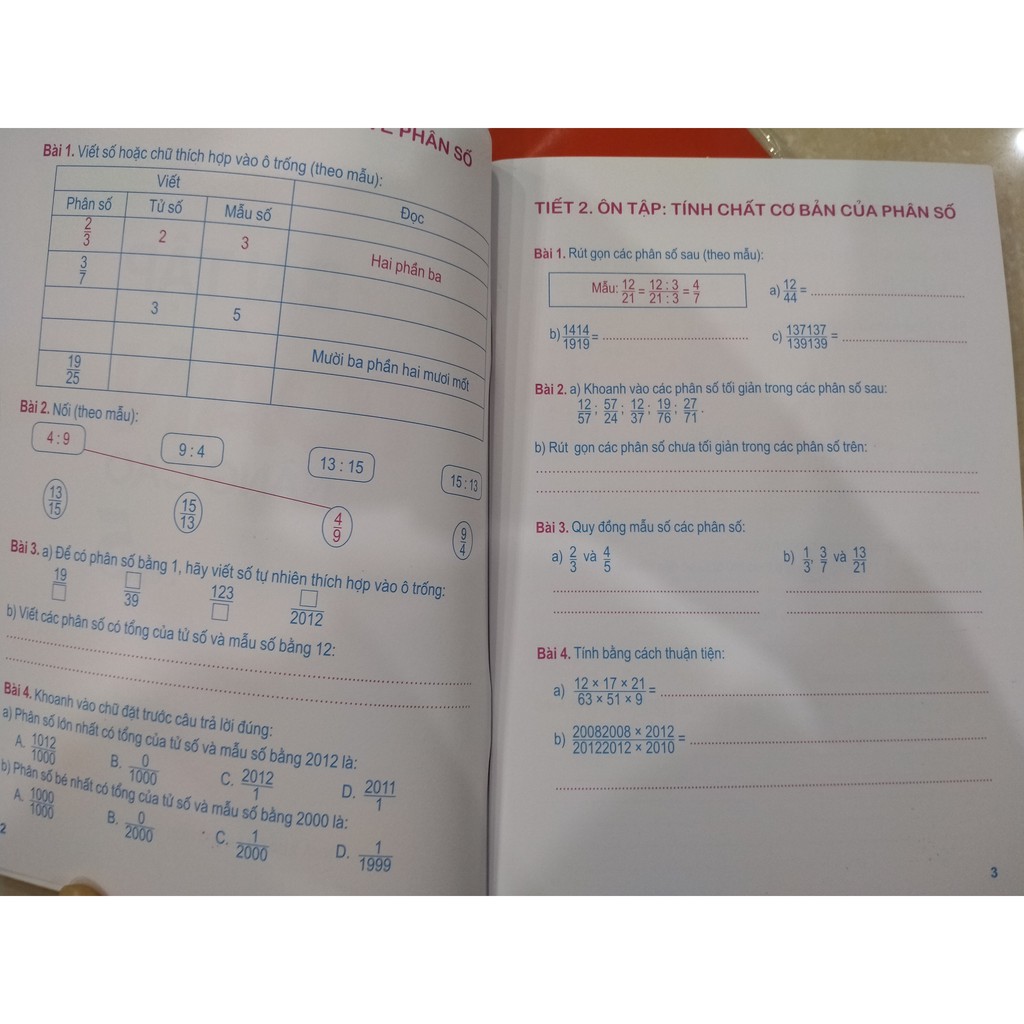 PHÂN SỐ
Bài 1. Viết số hoặc chữ thích hợp vào ô trống (theo mẫu):
Viết Đọc
Phân số Tử số Mẫu số
2/3 2 3 Hai phần ba
3/7
3 5
Mười ba phần hai mươi mốt
19/25
Bài 2. Nối (theo mẫu):
4 : 9 9 : 4 13 : 15 15 : 13
13/15 15/13 4/9 9/4
Bài 3. a) Để có phân số bằng 1, hãy viết số tự nhiên thích hợp vào ô trống:
19/□ □/39 123/□ □/2012
b) Viết các phân số có tổng của tử số và mẫu số bằng 12:
Bài 4. Khoanh vào chữ đặt trước câu trả lời đúng:
a) Phân số lớn nhất có tổng của tử số và mẫu số bằng 2012 là:
A. 1012/1000 B. 0/1000 C. 2012/1 D. 2011/1
b) Phân số bé nhất có tổng của tử số và mẫu số bằng 2000 là:
A. 1000/1000 B. 0/2000 C. 1/2000 D. 1/1999
2
TIẾT 2. ÔN TẬP: TÍNH CHẤT CƠ BẢN CỦA PHÂN SỐ
Bài 1. Rút gọn các phân số sau (theo mẫu):
Mẫu: 12/21 = 12 : 3/21 : 3 = 4/7 a) 12/44 =
b) 1414/1919 = c) 137137/139139 =
Bài 2. a) Khoanh vào các phân số tối giản trong các phân số sau:
12/57; 57/24; 12/37; 19/76; 27/71.
b) Rút gọn các phân số chưa tối giản trong các phân số trên:
Bài 3. Quy đồng mẫu số các phân số:
a) 2/3 và 4/5 b) 1/3, 3/7 và 13/21
Bài 4. Tính bằng cách thuận tiện:
a) 12 × 17 × 21/63 × 51 × 9 =
b) 20082008 × 2012/20122012 × 2010 =
3